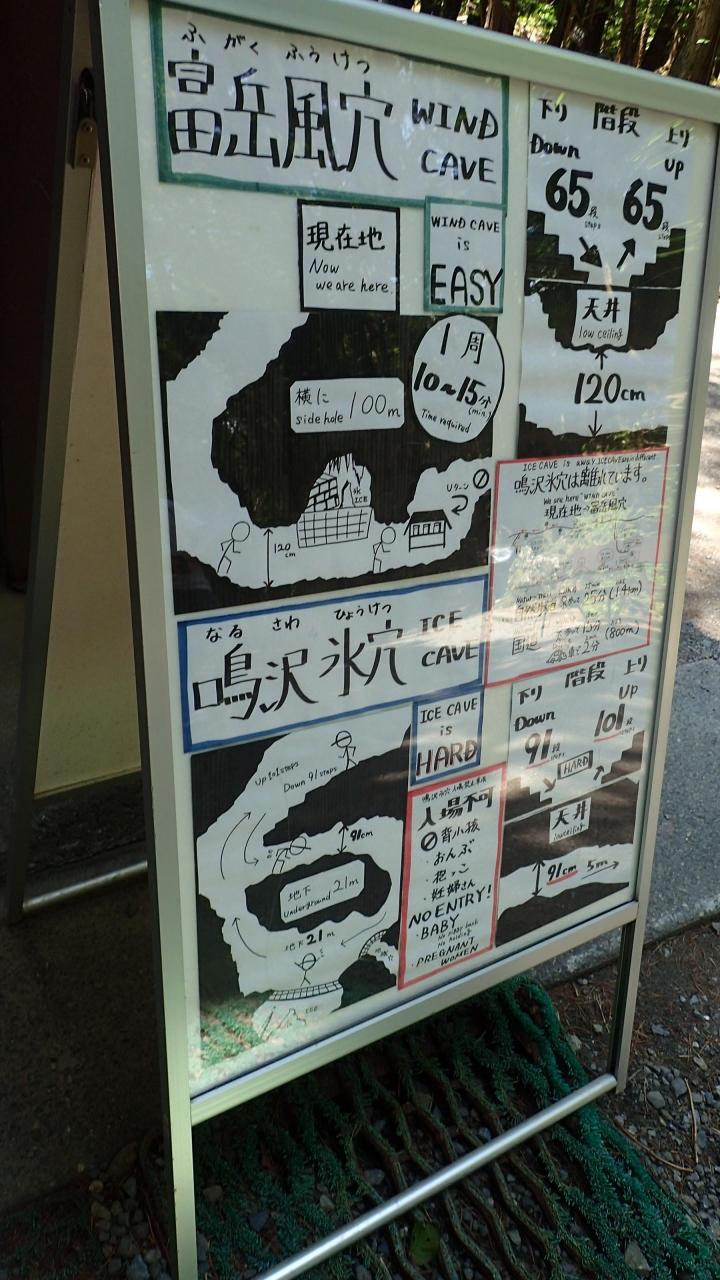 ふがく ふうけつ
富岳風穴 WIND CAVE
現在地
Now
we are here.
WIND CAVE
is
EASY
下り 階段 上り
Down UP
65段 65段
steps steps
天井
low ceiling
120cm
1周
10~15分
(min.)
Time required
横に
side hole 100m
ICE
Uターン
120
cm
ICE CAVE is away.
鳴沢氷穴は離れています。
We are here "WIND CAVE"
現在地→富岳風穴
25分(1.4km)
国道 15分 (800m)
車で2分
なるさわ ひょうけつ
鳴沢氷穴 ICE CAVE
ICE CAVE
is
HARD
下り 階段 上り
Down UP
91段 101段
steps steps
HARD
天井
low ceiling
91cm 5m
UP 101 steps
Down 91 steps
91cm
地下
underground 21m
地下21m
ICE
入場不可
背小孩
・おんぶ
・抱っこ
・妊婦さん
NO ENTRY!
・BABY
No piggy back
No holding
・PREGNANT
WOMEN